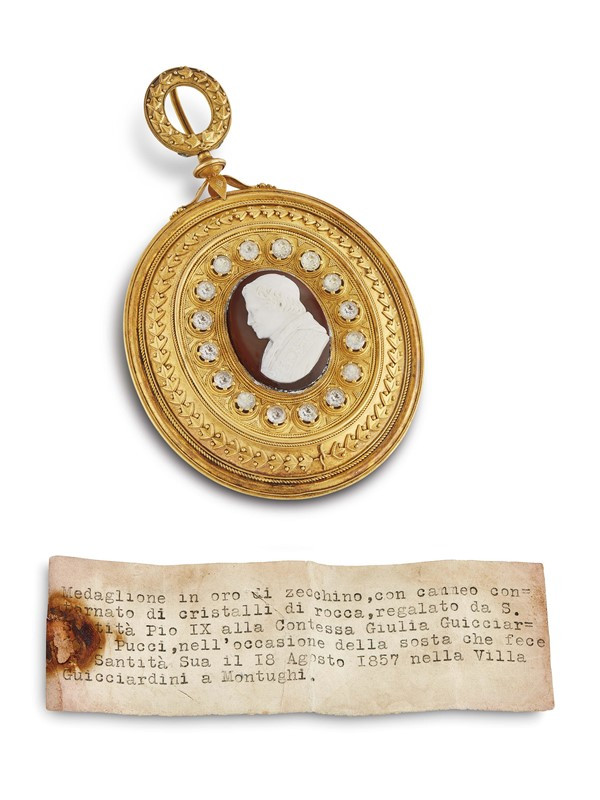 Medaglione in oro di zecchino,con cammeo con=
tornato di cristalli di rocca,regalato da S.
tità Pio IX alla Contessa Giulia Guicciar=
Pucci,nell'occasione della sosta che fece
Santità Sua il I8 Agosto I857 nella Villa
Guicciardini a Montughi.